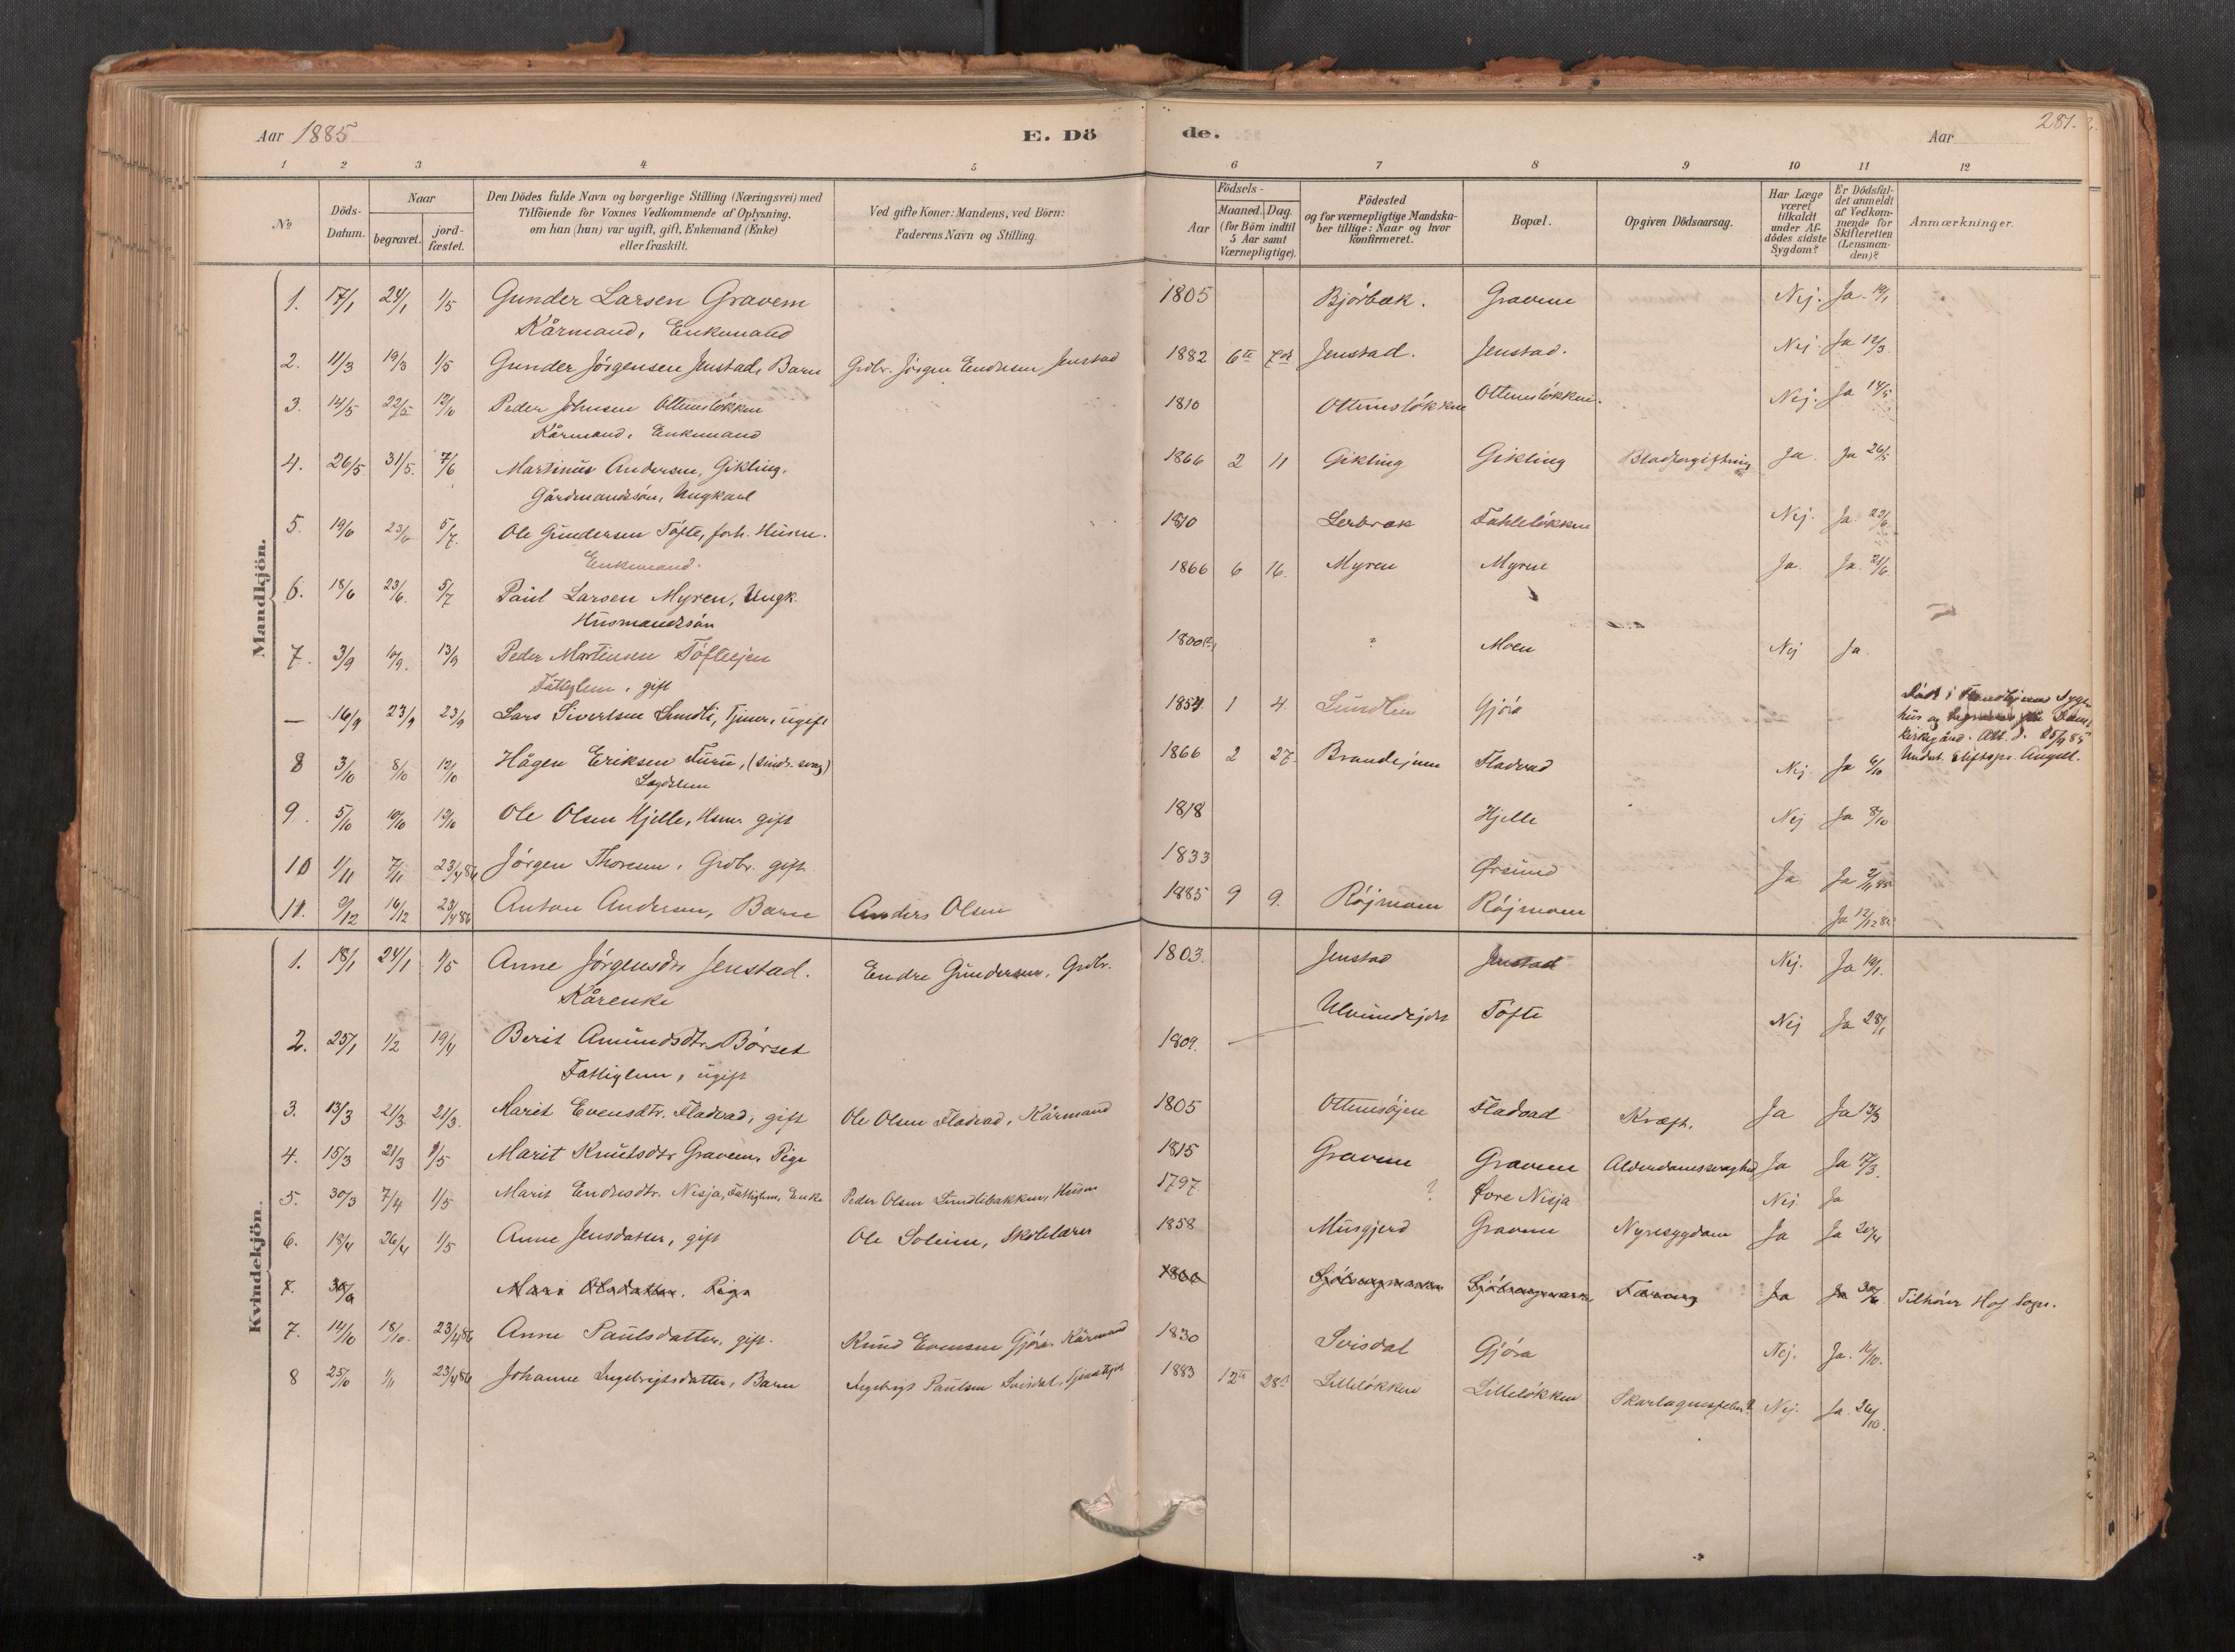 Aar 1885
E. Dö de.
Aar
281.
1 2 3 4 5 6 7 8 9 10 11 12
No
Döds-Datum.
Naar
begravet.
jord-fæstet.
Den Dödes fulde Navn og borgerlige Stilling (Næringsvei) med
Tilföiende for Voxnes Vedkommende af Oplysning.
om han (han) var ugift, gift, Enkemand (Enke)
eller fraskilt.
Ved gifte Koner: Mandens, ved Börn:
Faderens Navn og Stilling.
Födsels-
Aar
Maaned. Dag.
(for Börn indtil
5 Aar samt
Værnepligtige).
Födested
og for værnepligtige Mandska-
ber tillige: Naar og hvor
konfirmeret.
Bopæl.
Opgiven Dödsaarsag.
Har Læge
været
tilkaldt
under Af-
dödes sidste
Sygdom?
Er Dödsfal-
det anmeldt
af Vedkom-
mende for
Skifteretten
(Lensman-
den)?
Anmærkninger.
Mandkjön.
1. 17/1 24/1 1/5 Gunder Larsen Gravem 1805 Bjørbæk. Gravem Nej. Ja 19/1
Kårmand, Enkemand
2. 11/3 19/3 1/5 Gunder Jörgensen Jenstad, Barn Grdbr. Jörgen Endresen Jenstad 1882 6te 7de Jenstad. Jenstad. Nej. Ja 12/3
3. 14/5 22/5 12/10 Peder Johnsen Ottemslökken 1810 Ottemslökken Ottemslökken. Nej. Ja 14/5
Kårmand, Enkemand
4. 26/5 31/5. 7/6 Martinus Andersen, Gikling. 1866 2 11 Gikling Gikling Blodforgiftning Ja Ja 26/5
Gårdmandssön, Ungkarl
5. 19/6 23/6 5/7. Ole Gundersen Töfte, forh. Husm. 1810 Lerbræk Fahlelökken Nej. Ja. 23/6.
Enkemand.
6. 18/6 23/6. 5/7 Paul Larsen Myren, Ungk. 1866 6 16. Myren Myren Ja. Ja. 21/6.
Husmandssön
7. 3/9 10/9. 13/9 Peder Martinsen Töftøjen ? Moen Nej Ja
Fattiglem, gift
— 16/9 23/9 23/9 Lars Sivertsen Sundli, Tjener, ugift 1854. 1 4. Sundlien Gjöra Död i Trondhjems Syge-
hus og
kirkegård. Att. d. 25/9 85
8 3/10 8/10 12/10 Hågen Eriksen Furu, (sinds. svag) 1866 2 27. Brandøjen Fladvad Nej. Ja 6/10 Stiftspr. Angell.
Lægdslem
9. 5/10 10/10 12/10 Ole Olsen Hjelle, Husm. gift 1818 Hjelle Nej Ja 8/10
10 1/11 7/11 23/4 86 Jörgen Thoresen, Grdbr. gift 1833 Ørsund Ja Ja 2/11 85
11. 9/12 16/12 23/4 86 Anton Andersen, Barn Anders Olsen 1885 9 9. Röjmoen Röjmoen Ja 12/12 85
Kvindekjön.
1. 18/1 24/1 1/5 Anne Jörgensdtr Jenstad. Endre Gundersen, Grdbr. 1803. Jenstad Jenstad Nej. Ja 19/1.
Kårenke
2. 25/1 1/2 19/4 Berit Amundsdtr Børset 1809. Töfte Nej Ja 28/1
Fattiglem, ugift
3. 13/3 21/3 21/3. Marit Evensdtr. Fladvad, gift Ole Olsen Fladvad, Kårmand 1805 Ottemsøjen Fladvad Kræft. Ja Ja 13/3
4. 15/3 21/3 1/5 Marit Knutsdtr Gravem, Pige 1815 Gravem Gravem Alderdomssvaghed Ja Ja 17/3.
5. 30/3 7/4 1/5 Marit Endresdtr. Nisja, Fattiglem, Enke Peder Olsen Sundlibakken, Husm 1797 ? Øvre Nisja Nej Ja
6. 18/4 26/4 1/5 Anne Jensdatter, gift Ole Soleim, Skolelærer 1858 Musgjerd Gravem Nyresygdom Ja Ja 20/4
7. 30/9 Mari Olsdatter. Pige 1800 Tæring Ja Ja Tilhörer Hof Sogn.
7. 14/10 18/10. 23/4 86 Anne Paulsdatter, gift. Knud Evensen Gjöra, Kårmand 1830 Svisdal Gjöra Nej. Ja. 16/10.
8 25/10 1/11 23/4 86 Johanne Ingebrigtsdatter, Barn Ingebrigt Paulsen Svisdal, 1883 12te 28de Lillelökken Lillelökken Skarlagensfeber? Nej. Ja. 26/10.